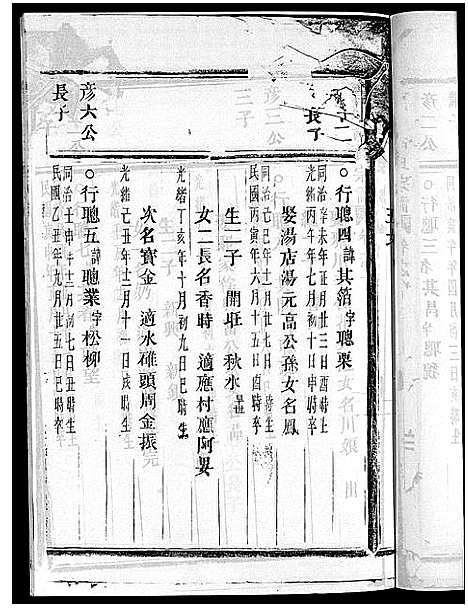 長子
○行聰四諱其箔字聰栗
同治辛未年正月廿三日酉時生
光緒丙午年七月初十日申時卒
娶湯店湯元高公孫女名鳳
同治己巳年十二月初五日酉時生
民國丙寅年六月十五日酉時卒
生二子 開旺 公秋水
女二長名香時 適應村應阿
光緒丁亥年十月初九日巳時生
次名寶金 適水碓頭周金振
光緒己丑年十二月十一日戌時生
彦六公
長子
○行聰五諱聰業字松柳
同治壬申年十二月初七日丑時生
民國乙丑年九月廿三日巳時卒
彦二公
○行聰三名其昌字聰